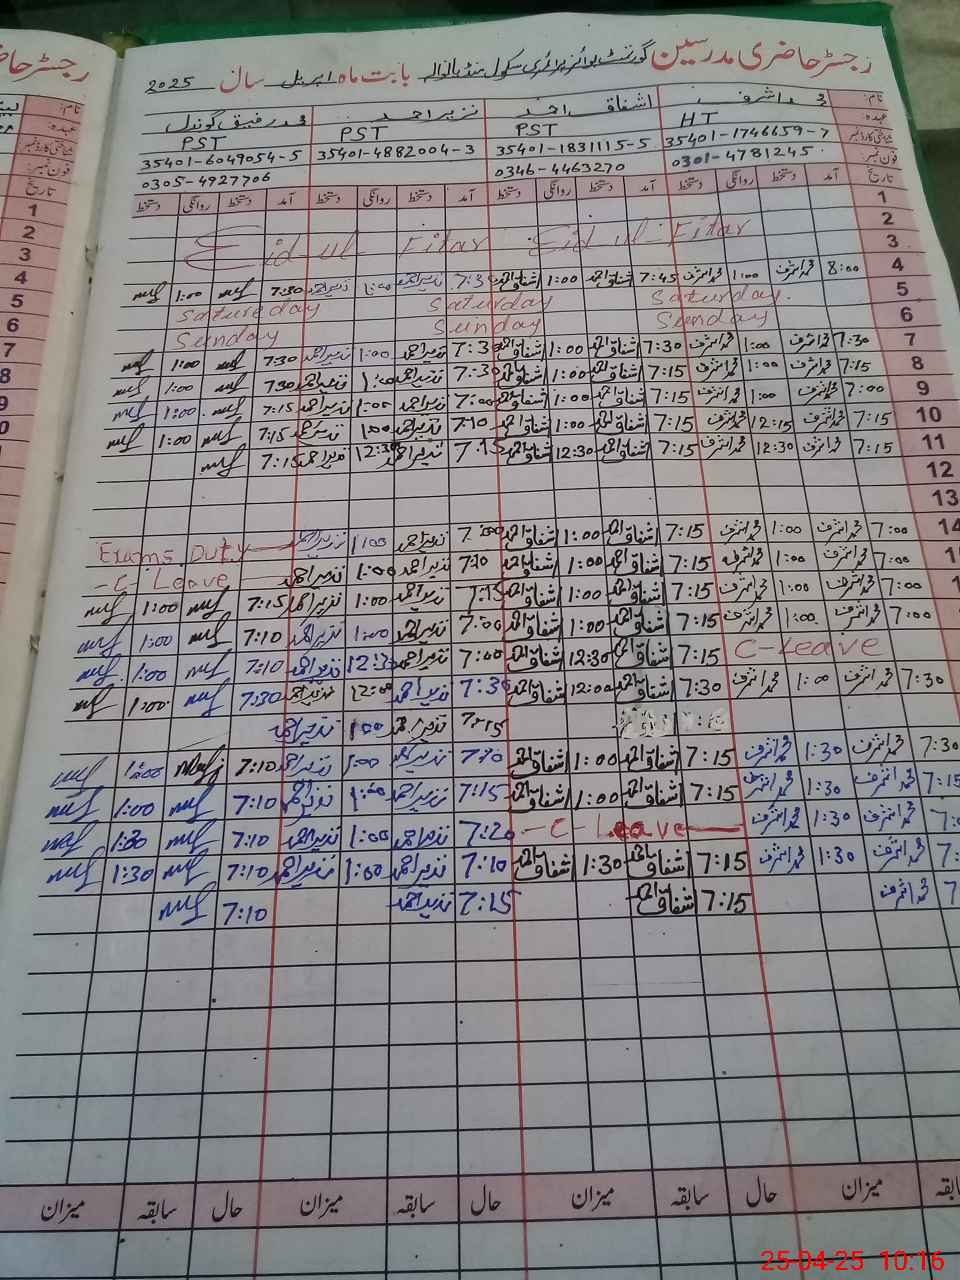 رجسٹر حاضری مدرسین گورنمنٹ بوائز پرائمری سکول بابت ماہ اپریل سال 2025
نام: محمد اشرف اشفاق احمد نذیر احمد محمد رفیق گوندل
عہدہ: HT PST PST PST
شناختی کارڈ نمبر 35401-1746659-7 35401-1831115-5 35401-4882004-3 35401-6049054-5
فون نمبر: 0301-4781245 0346-4463270 0305-4927706
تاریخ آمد دستخط روانگی دستخط آمد دستخط روانگی دستخط آمد دستخط روانگی دستخط آمد دستخط روانگی دستخط
1
2 Eid-ul-Fitar Eid-ul Fitar
3
4 8:00 محمد اشرف 1:00 محمد اشرف 7:45 اشفاق احمد 1:00 اشفاق احمد 7:3 نذیر احمد 1:00 نذیر احمد 7:30 1:00
5 Saturday. Saturday Satureday
6 Sunday Sunday Sunday
7 7:30 محمد اشرف 1:00 محمد اشرف 7:30 اشفاق احمد 1:00 اشفاق احمد 7:3 نذیر احمد 1:00 نذیر احمد 7:30 1:00
8 7:15 محمد اشرف 1:00 محمد اشرف 7:15 اشفاق احمد 1:00 اشفاق احمد 7:30 نذیر احمد 1:00 نذیر احمد 7:30 1:00
9 7:00 محمد اشرف 1:00 محمد اشرف 7:15 اشفاق احمد 1:00 اشفاق احمد 7:00 نذیر احمد 1:00 نذیر احمد 7:15 1:00
10 7:15 محمد اشرف 12:15 محمد اشرف 7:15 اشفاق احمد 1:00 اشفاق احمد 7:10 نذیر احمد 1:00 نذیر احمد 7:15 1:00
11 7:15 محمد اشرف 12:30 محمد اشرف 7:15 اشفاق احمد 12:30 اشفاق احمد 7:15 نذیر احمد 12:30 نذیر احمد 7:15
12
13
14 7:00 محمد اشرف 1:00 محمد اشرف 7:15 اشفاق احمد 1:00 اشفاق احمد 7:00 نذیر احمد 1:00 نذیر احمد Exams Duty
7:00 محمد اشرف 1:00 محمد اشرف 7:15 اشفاق احمد 1:00 اشفاق احمد 7:10 نذیر احمد 1:00 نذیر احمد -C- Leave
7:00 محمد اشرف 1:00 محمد اشرف 7:15 اشفاق احمد 1:00 اشفاق احمد 7:15 نذیر احمد 1:00 نذیر احمد 7:15 1:00
7:00 محمد اشرف 1:00 محمد اشرف 7:15 اشفاق احمد 1:00 اشفاق احمد 7:00 نذیر احمد 1:00 نذیر احمد 7:10 1:00
C-Leave 7:15 اشفاق احمد 12:30 اشفاق احمد 7:00 نذیر احمد 12:3 نذیر احمد 7:10 1:00
7:30 محمد اشرف 1:00 محمد اشرف 7:30 اشفاق احمد 12:00 اشفاق احمد 7:30 نذیر احمد 12:00 نذیر احمد 7:30 1:00
7:15 نذیر احمد 1:00 نذیر احمد
7:30 محمد اشرف 1:30 محمد اشرف 7:15 اشفاق احمد 1:00 اشفاق احمد 7:20 نذیر احمد 1:00 نذیر احمد 7:10 1:00
7:15 محمد اشرف 1:30 محمد اشرف 7:15 اشفاق احمد 1:00 اشفاق احمد 7:15 نذیر احمد 1:00 نذیر احمد 7:10 1:00
محمد اشرف 1:30 محمد اشرف -C-Leave 7:20 نذیر احمد 1:00 نذیر احمد 7:10 1:30
محمد اشرف 1:30 محمد اشرف 7:15 اشفاق احمد 1:30 اشفاق احمد 7:10 نذیر احمد 1:00 نذیر احمد 7:10 1:30
محمد اشرف 7:15 اشفاق احمد 7:15 نذیر احمد 7:10
میزان حال سابقہ میزان حال سابقہ میزان حال سابقہ میزان
25-04-25 10:16